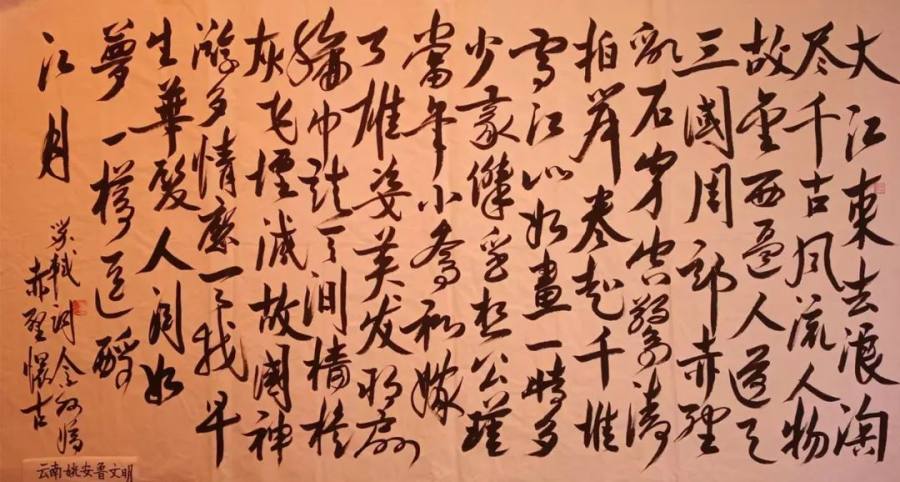 大江東去浪淘
尽千古风流人物
故垒西邊人道是
三國周郎赤壁
亂石穿空驚濤
拍岸卷起千堆
雪江山如畫一時多
少豪傑遥想公瑾
當年小喬初嫁
了雄姿英发羽扇
綸巾談笑间檣橹
灰飞煙滅故國神
游多情應笑我早
生華髮人间如
夢一樽還酹
江月
苏軾词念奴嬌
赤壁懷古
云南姚安鲁文明